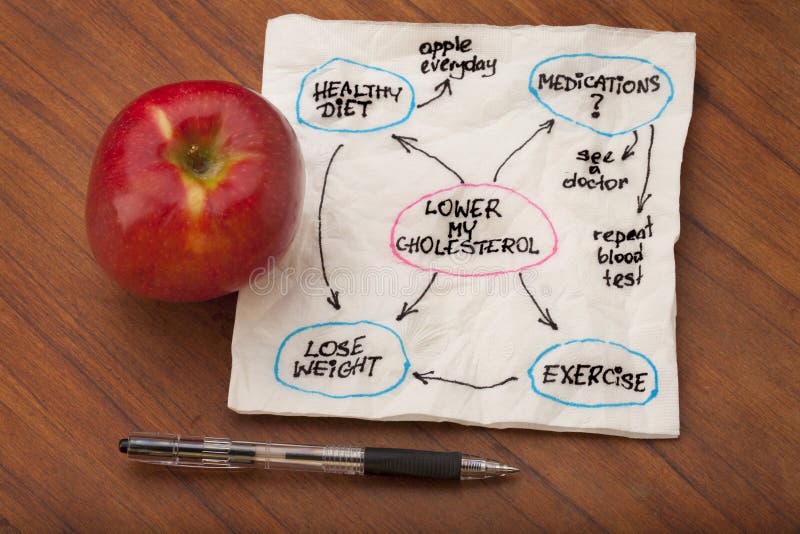 apple
everyday
HEALTHY
DIET
MEDICATIONS
?
see
a
doctor
LOWER
MY
CHOLESTEROL
repeat
blood
test
LOSE
WEIGHT
EXERCISE
dreamstime
dreamstime
dreamstime